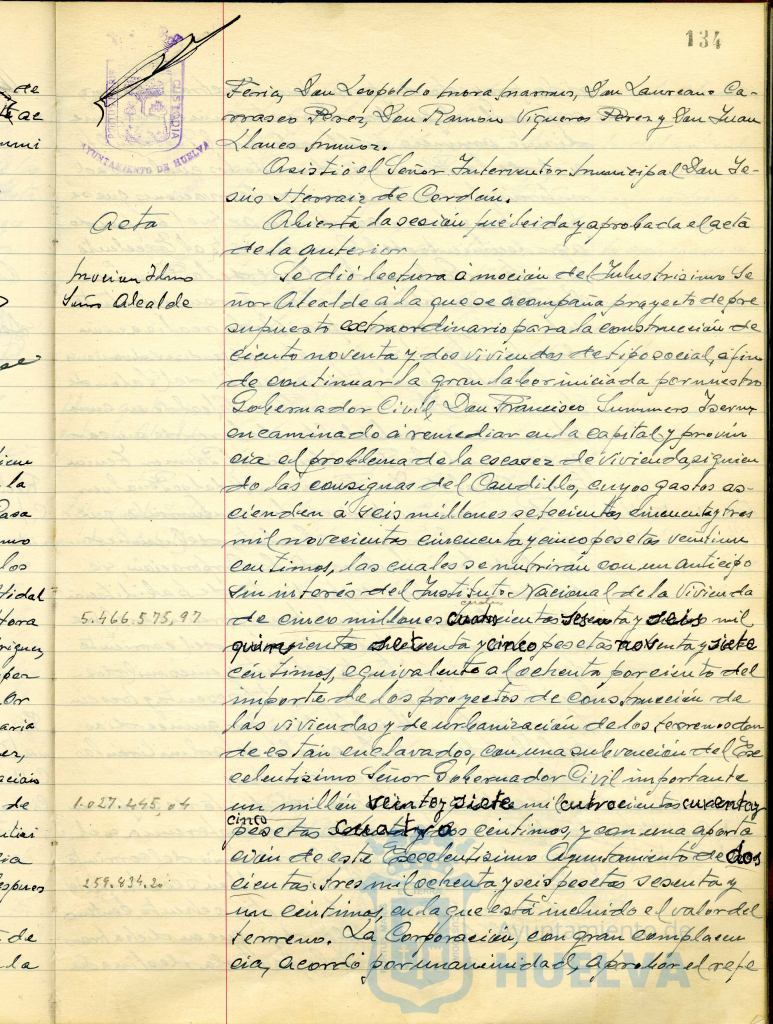 134
Feria, Don Leopoldo Mora Don Laureano Ca-
rrasco Perez, Don Ramón Vigueras Perez y Don Juan
Llanes Muñoz.
Asistió el Señor Interventor Municipal Don Je-
sús Herraiz de Cordán.
Acta
Abierta la sesión fué leida y aprobada el acta
de la anterior
Moción Ilmo
Señor Alcalde
Se dió lectura á moción del Ilustrisimo Se
ñor Alcalde á la que se acompaña proyecto de pre
supuesto extraordinario para la construcción de
ciento noventa y dos viviendas de tipo social, a fin
de continuar la gran labor iniciada por nuestro
Gobernador Civil, Don Francisco Summers Isern y
encaminado á remediar en la capital y provin
cia el problema de la escasez de vivienda siguien
do las consignas del Caudillo, cuyos gastos as-
cienden á seis millones setecientas cincuenta y tres
mil novecientas cincuenta y cinco pesetas veintiun
centimos, las cuales se nutrirán con un anticipo
sin interés del Instituto Nacional de la Vivienda
5.466.575,97
de cinco millones cuatrocientas sesenta y seis mil
quinientas setenta y cinco pesetas noventa y siete
céntimos, equivalente al ochenta por ciento del
importe de los proyectos de construcción de
las viviendas y de urbanización de los terrenos don
de están enclavados, con una subvención del Ex
celentisimo Señor Gobernador Civil importante
1.027.445,04
un millón veinte y siete mil cuatrocientas cuarenta y
cinco
pesetas cuatro céntimos, y con una aporta
ción de este Excelentisimo Ayuntamiento de dos
259.834.20
cientas tres mil ochenta y seis pesetas sesenta y
un centimos, en la que está incluido el valor del
terreno. La Corporación, con gran complacen
cia, acordó por unanimidad, aprobar el refe
AYUNTAMIENTO DE HUELVA
Ayuntamiento de
HUELVA